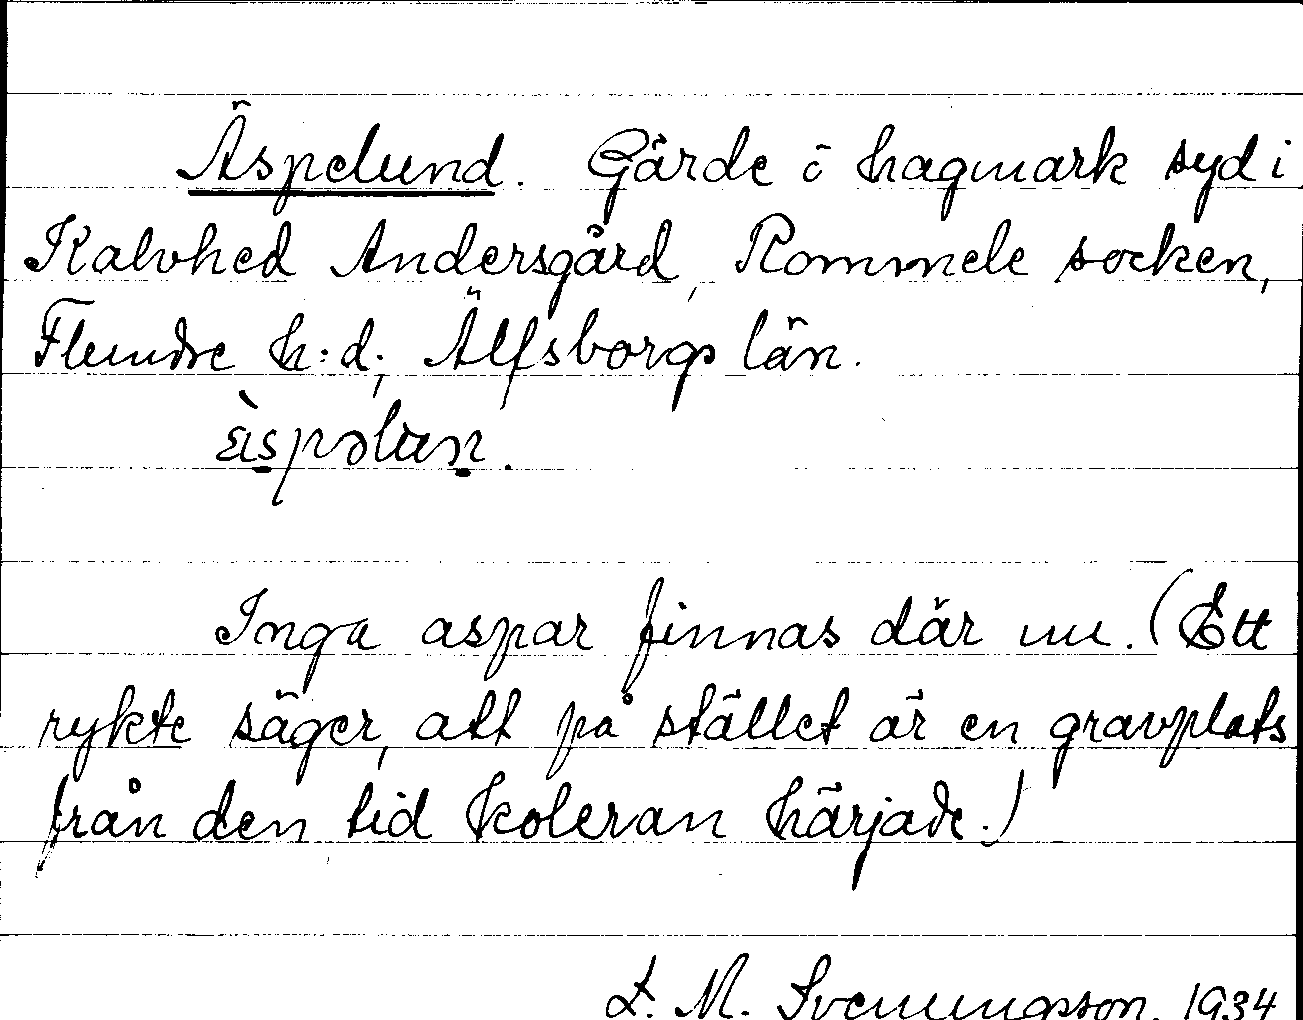 Äspelund. Gärde i hagmark syd i
Kalvhed Andersgård, Rommele socken,
Flundre h:d, Älfsborgs län.
Inga aspar finnas där nu. (Ett
rykte säger, att på stället är en gravplats
från den tid koleran härjade.)
F. M. Svenungsson. 1934